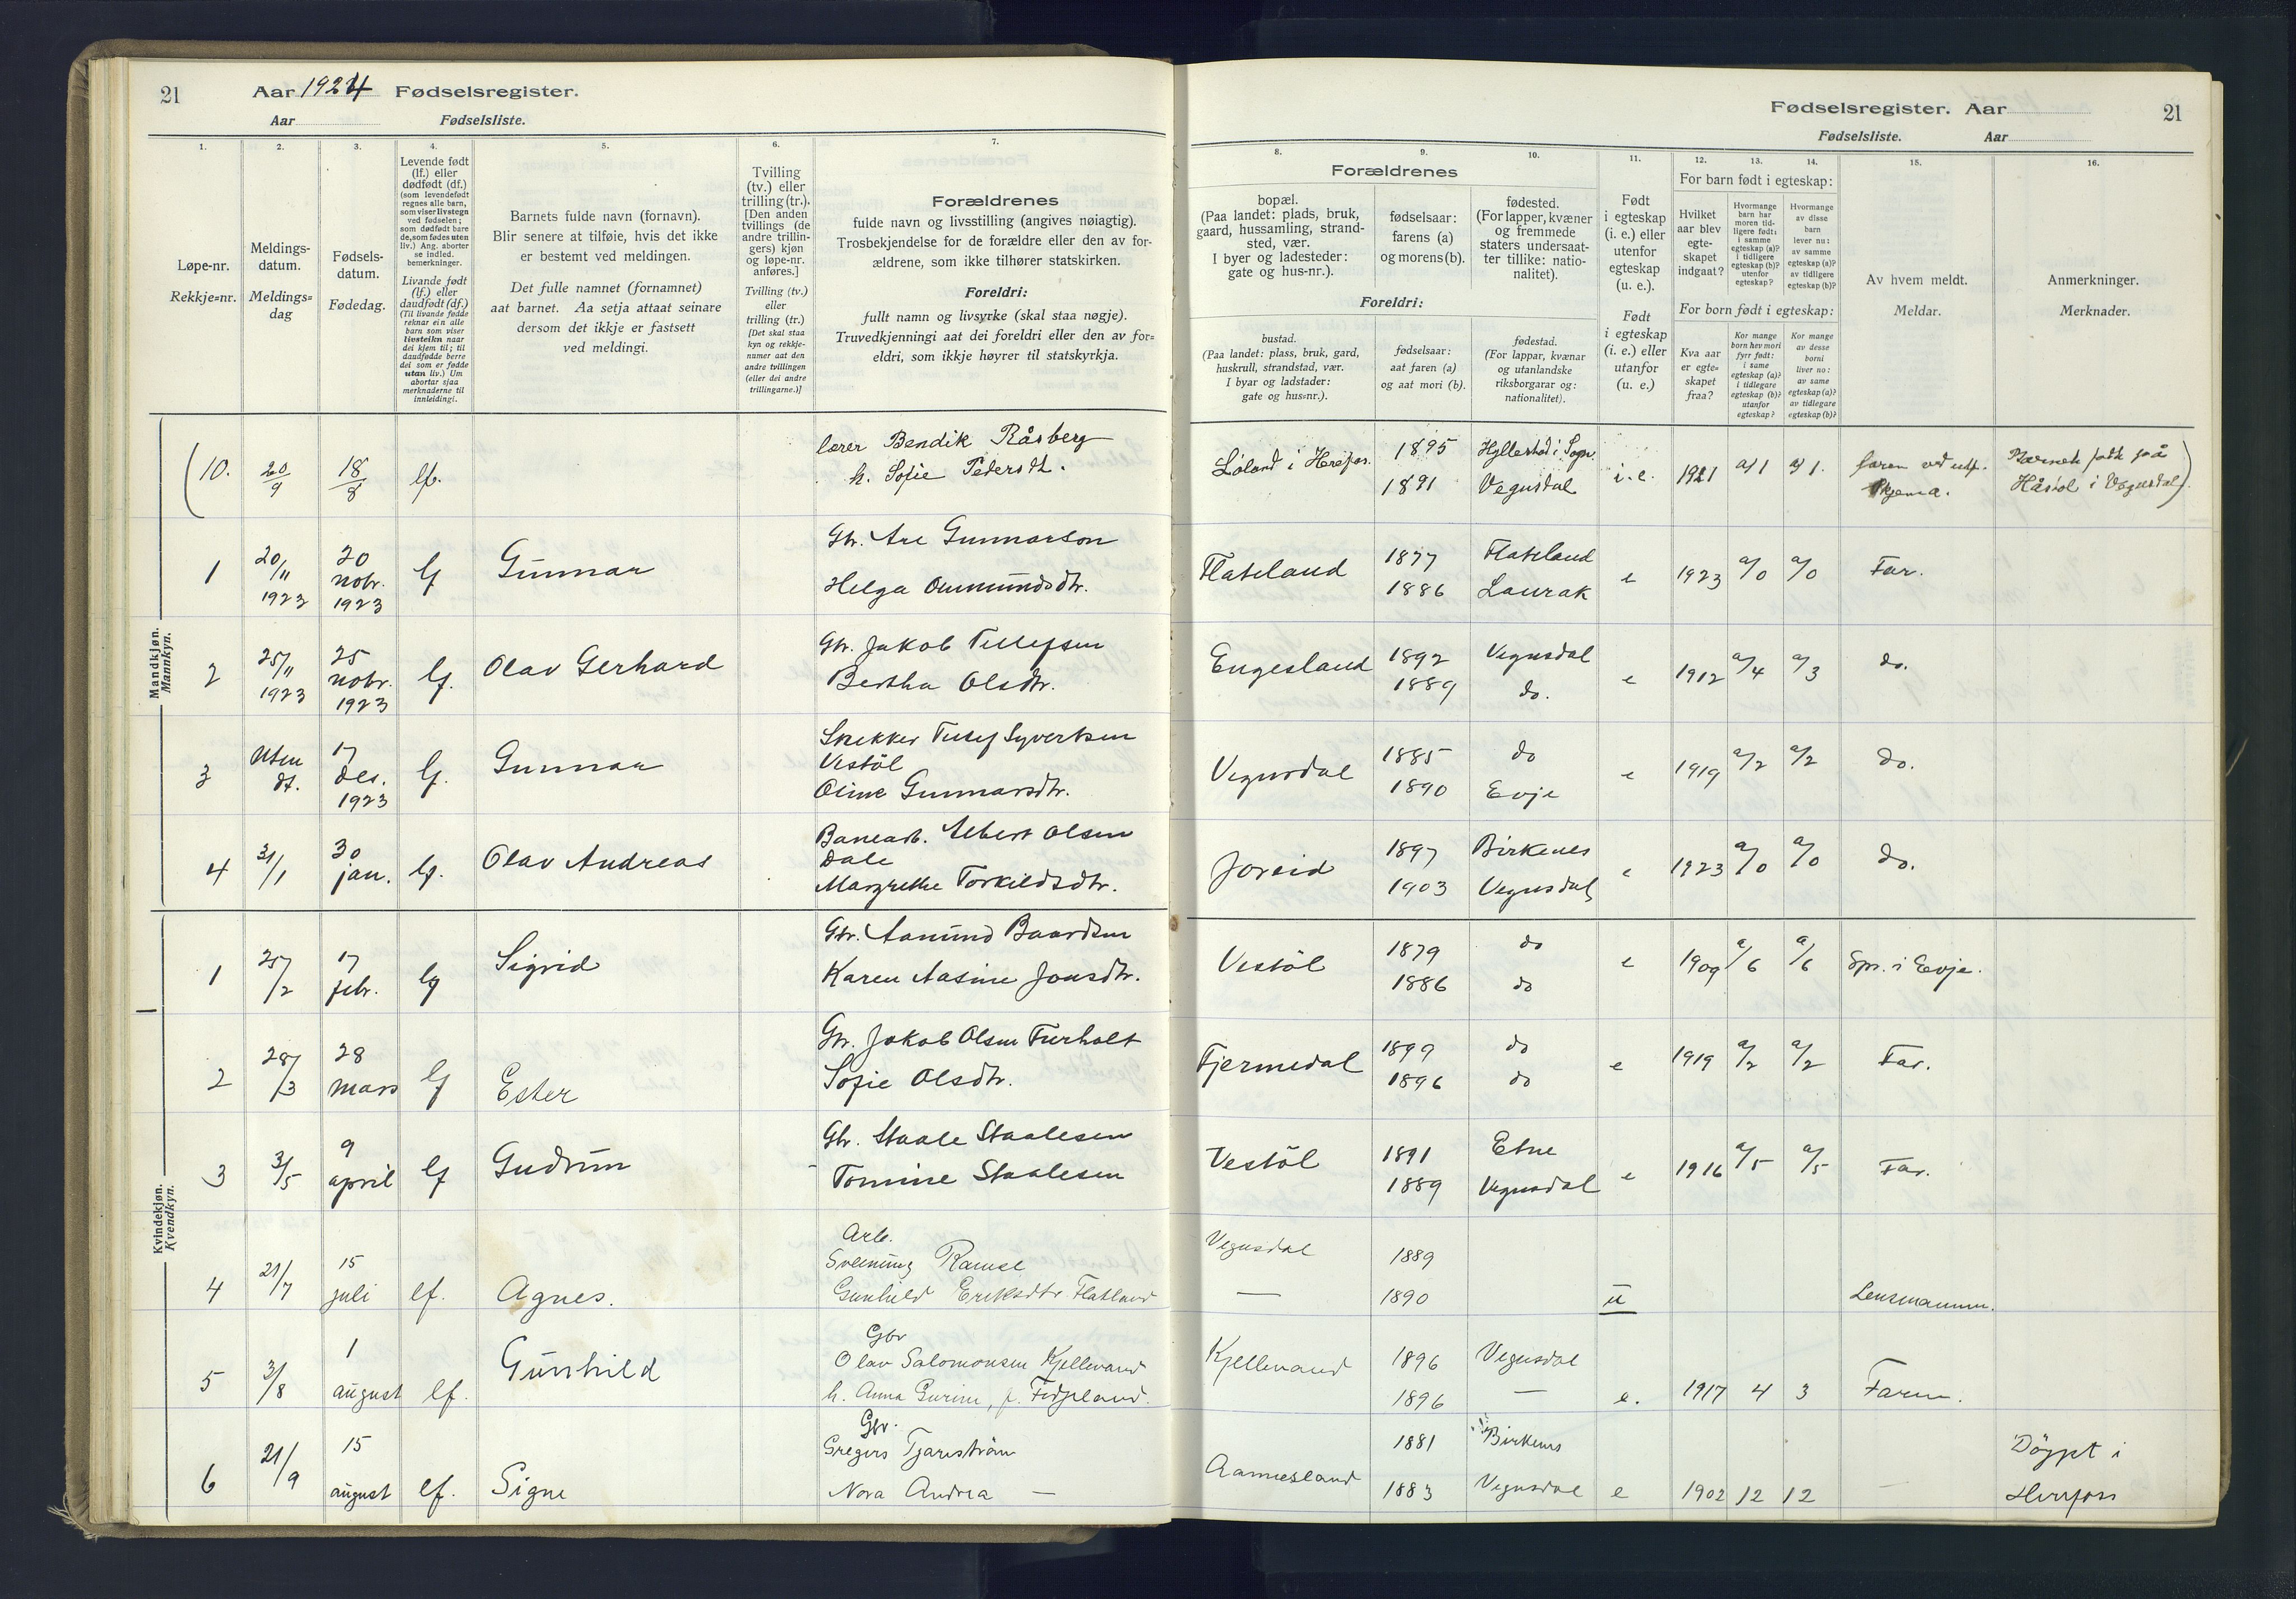 21
Aar 1924 Fødselsregister.
Aar Fødselsliste.
Fødselsregister. Aar
21
Fødselsliste. Aar
1. 2. 3. 4. 5. 6. 7.
8. 9. 10. 11. 12. 13. 14. 15. 16.
Løpe-nr.
Rekkje=nr.
Meldings-
datum.
Meldings=
dag
Fødsels-
datum.
Fødedag.
Levende født
(lf.) eller
dødfødt (df.)
(som levendefødt
regnes alle barn,
som viser livstegn
ved fødselen;
som dødfødt bare
de, som fødes uten
liv.) Ang. aborter
se indled.
bemerkninger.
Livande født
(lf.) eller
daudfødt (df.)
(Til livande fødde
reknar ein alle
barn som viser
livsteikn naar
dei kjem til; til
daudfødde berre
dei som er fødde
utan liv.) Um
abortar sjaa
merknaderne til
innleidingi.
Barnets fulde navn (fornavn).
Blir senere at tilføie, hvis det ikke
er bestemt ved meldingen.
Det fulle namnet (fornamnet)
aat barnet. Aa setja attaat seinare
dersom det ikkje er fastsett
ved meldingi.
Tvilling
(tv.) eller
trilling (tr.).
[Den anden
tvillings (de
andre trillin-
gers) kjøn
og løpe-nr.
anføres.]
Tvilling (tv.)
eller
trilling (tr.)
[Det skal staa
kyn og rekkje-
numer aat den
andre tvillingen
(eller dei andre
trillingarne.)]
Forældrenes
fulde navn og livsstilling (angives nøiagtig).
Trosbekjendelse for de forældre eller den av for-
ældrene, som ikke tilhører statskirken.
Foreldri:
fullt namn og livsyrke (skal staa nøgje).
Truvedkjenningi aat dei foreldri eller den av for=
eldri, som ikkje høyrer til statskyrkja.
Forældrenes
bopæl.
(Paa landet: plads, bruk,
gaard, hussamling, strand-
sted, vær.
I byer og ladesteder:
gate og hus-nr.).
fødselsaar:
farens (a)
og morens (b).
fødested.
(For lapper, kvæner
og fremmede
staters undersaat-
ter tillike: natio-
nalitet).
Foreldri:
bustad.
(Paa landet: plass, bruk, gard,
huskrull, strandstad, vær.
I byar og ladstader:
gate og hus=nr.).
fødselsaar:
aat faren (a)
og aat mori (b).
fødestad.
(For lappar, kvænar
og utanlandske
riksborgarar og:
nationalitet).
Født
i egteskap
(i. e.) eller
utenfor
egteskap
(u. e.).
Født
i egteskap
(i. e.) eller
utanfor
(u. e.)
For barn født i egteskap:
Hvilket
aar blev
egte-
skapet
indgaat?
Hvormange
barn har
moren tid-
ligere født:
i samme
egteskap (a)?
i tidligere
egteskap (b)?
utenfor
egteskap?
Hvormange
av disse
barn
lever nu:
av samme
egteskap (a)?
av tidligere
egteskap (b)?
For born født i egteskap:
Kva aar
er egte=
skapet
fraa?
Kor mange
born hev mori
fyrr født:
i same
egteskap (a)?
i tidlegare
egteskap (b)?
utanfor
egteskap?
Kor mange
av desse
borni
liver no:
av same
egteskap (a)?
av tidlegare
egteskap (b)?
Av hvem meldt.
Meldar.
Anmerkninger.
Merknader.
Mandkjøn.
Mannkyn.
(10. 20/9 18/8 lf. lærer Bendik Råsberg
h. Sofie Pedersdt.
Løland i Herefos. 1895 Hyllestad i Sogn
1891 Vegusdal i.e. 1921 a/1 a/1. faren ved utf.
skjema. Barnet født på
Håstøl i Vegusdal)
1 20/11 1923 20 nobr. 1923 lf Gunnar Gbr. Are Gunnarson
Helga Aumundsdtr.
Flateland 1877 Flateland
1886 Laurak e 1923 a/0 a/0 Far.
2 25/11 1923 25 nobr. 1923 lf. Olav Gerhard Gbr. Jakob Tellefsen
Bertha Olsdtr.
Engesland 1892 Vegusdal
1889 do. e 1912 a/4 a/3 do.
3 Uten dt. 17 des. 1923 lf. Gunnar Snekker Tellef Syvertsen
Vestöl
Oline Gunnarsdtr.
Vegusdal 1885 do
1890 Evje e 1919 a/2 a/2 do.
4 31/1 30 jan. lf. Olav Andreas Banearb. Albert Olsen
Dale
Margrethe Torkildsdtr.
Joreid 1897 Birkenes
1903 Vegusdal e 1923 a/0 a/0 do.
Kvindekjøn.
Kvendkyn.
1 25/2 17 febr. lf Sigrid Gbr. Aanund Baardsen
Karen Aasine Jonsdtr.
Vestöl 1879 do
1886 do e 1909 a/6 a/6 Spr. i Evje.
2 28/3 28 mars lf Ester Gbr. Jakob Olsen Furholt
Sofie Olsdtr.
Fjermedal 1899 do
1896 do e 1919 a/2 a/2 Far.
3 3/5 9 april lf Gudrun Gbr. Staale Staalesen
Tomine Staalesen
Vestöl 1891 Etne
1889 Vegusdal e 1916 a/5 a/5 Far.
4 21/7 15 juli lf. Agnes. Arb.
Sveinung Ramse
Gunhild Eriksdtr Flatland
Vegusdal 1889
— 1890 u Lensmannen.
5 3/8 1 august lf. Gunhild Gbr
Olav Salomonsen Kjellevand
h. Anna Gurine, f. Fidjeland.
Kjellevand 1896 Vegusdal
1896 — e. 1917 4 3 Faren.
6 21/9 15 august lf. Signe Gbr.
Gregers Tjørnstrøm
Nora Andrea —
Aannesland 1881 Birkenes
1883 Vegusdal e 1902 12 12 — Döpt i
Herefoss